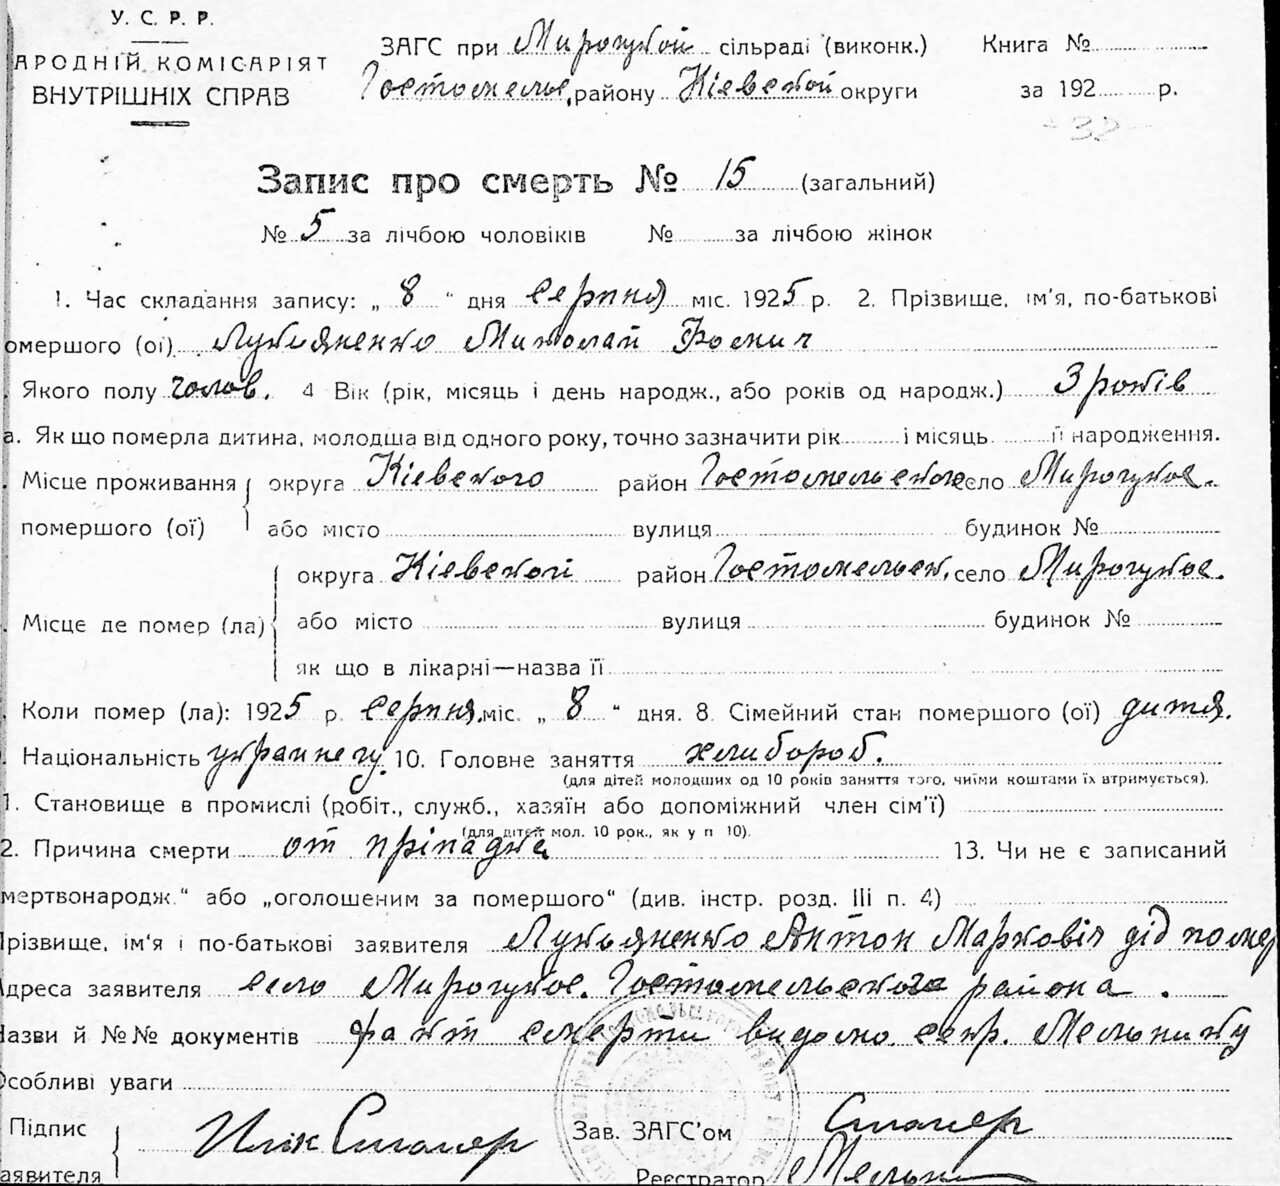 У. С. Р. Р.
АРОДНІЙ КОМІСАРІЯТ
ВНУТРІШНІХ СПРАВ
ЗАГС при Мироцукой сільраді (виконк.)
Гостомельс. району Кіевской округи
Книга №
за 192 р.
-32-
Запис про смерть № 15 (загальний)
№ 5 за лічбою чоловіків № за лічбою жінок
1. Час складання запису: „ 8 “ дня серпня міс. 1925 р. 2. Прізвище, ім'я, по-батькові
омершого (ої) Лукьяненко Миколай Фомич
Якого полу чолов. 4 Вік (рік, місяць і день народж., або років од народж.) 3 років
а. Як що померла дитина, молодша від одного року, точно зазначити рік і місяць її народження.
Місце проживання округа Кіевского район Гостомельского село Мироцкое.
помершого (ої) або місто вулиця будинок №
округа Кіевской район Гостомельск. село Мироцкое.
Місце де помер (ла) або місто вулиця будинок №
як що в лікарні—назва її
Коли помер (ла): 1925 р. серпня. міс. „ 8 “ дня. 8. Сімейний стан помершого (ої) дитя.
Національність 10. Головне заняття хлибороб.
(для дітей молодших од 10 років заняття того, чиїми коштами їх втримується).
1. Становище в промислі (робіт., служб., хазяїн або допоміжний член сім'ї)
(для дітей мол. 10 рок., як у п 10).
2. Причина смерти от пріпадка 13. Чи не є записаний
мертвонародж.“ або „оголошеним за помершого“ (див. інстр. розд. III п. 4)
Прізвище, ім'я і по-батькові заявителя Лукьяненко Антон Маркович дід помер
Адреса заявителя село Мироцкое. Гостомельского района.
Назви й №№ документів факт смерти видомо секр. Мельнику
Особливі уваги
Підпис
аявителя
Столяр
Зав. ЗАГС'ом Столяр
Реєстратор Мельн